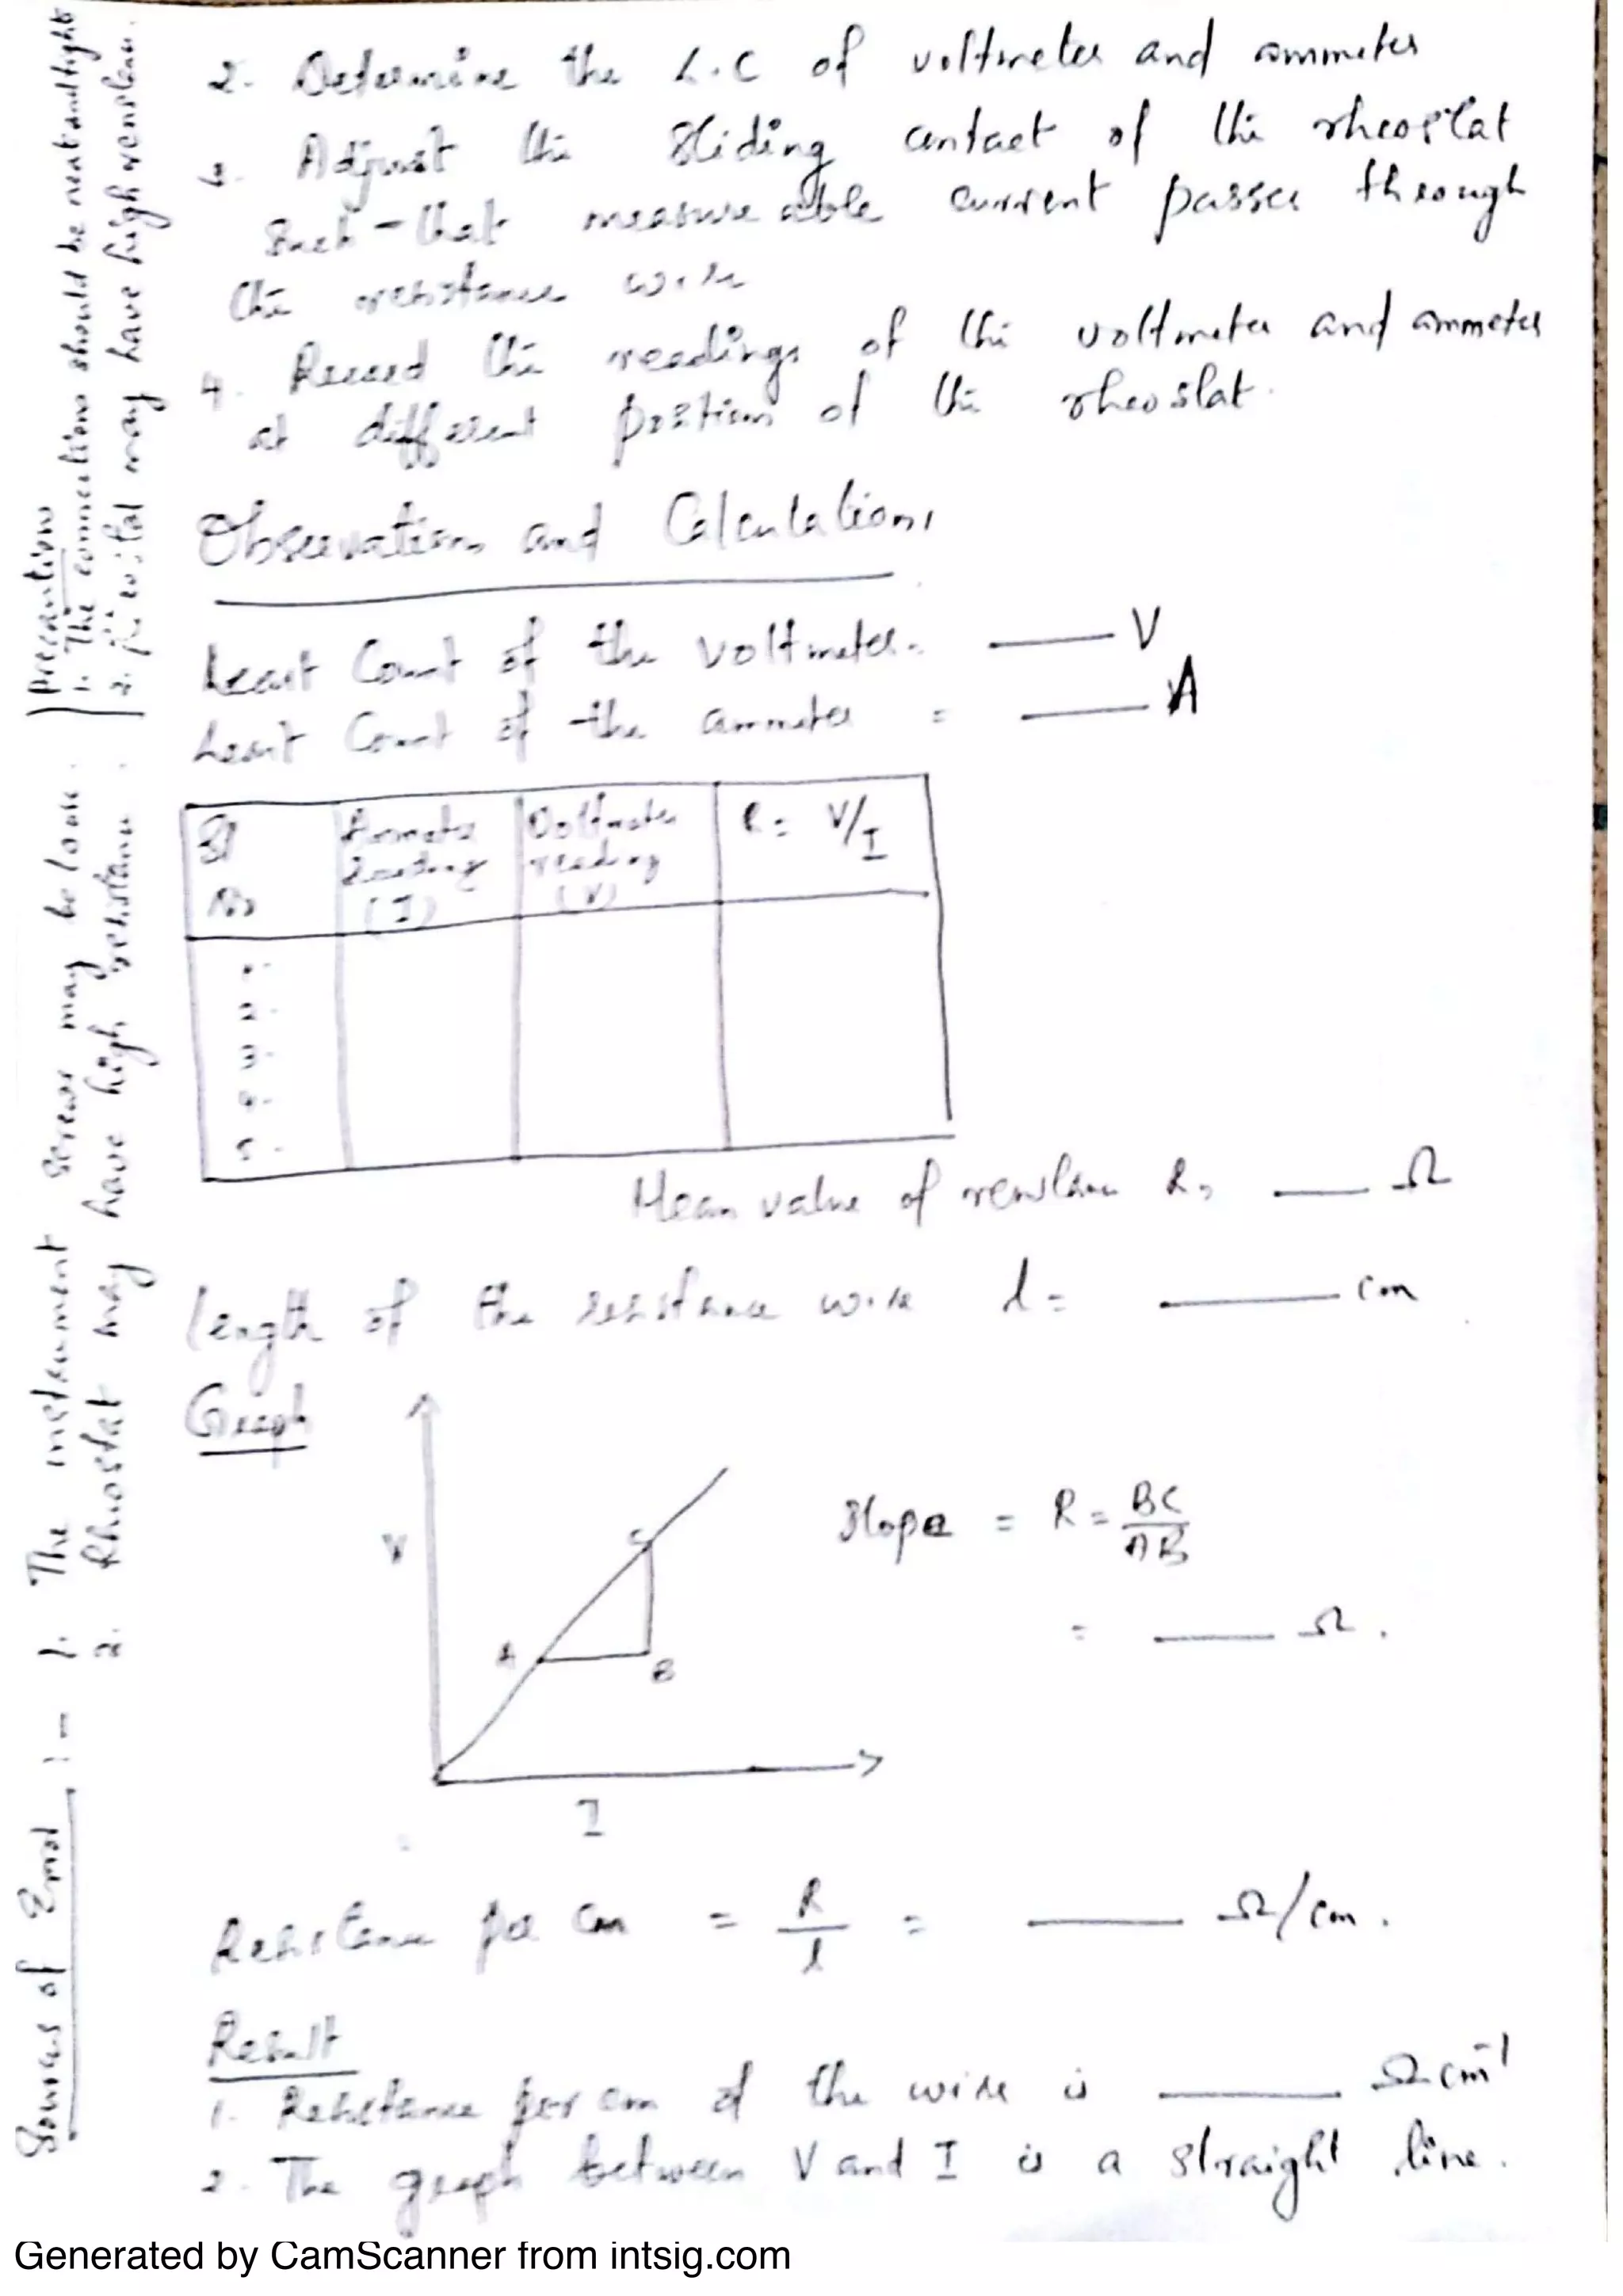 2. Determine the L.C of voltmeter and ammeter
Adjust the sliding contact of the rheostat
such that measureable current passes through
the resistance wire
4. Record the readings of the voltmeter and ammeter
at different positions of the rheostat.
Observations and Calculations
Least Count of the voltmeter = ____ V
Least Count of the ammeter = ____ A
Sl No
Ammeter reading (I)
Voltmeter reading (V)
R = V/I
1.
2.
3.
4.
5.
Mean value of resistance R = ____ Ω
Length of the resistance wire l = ____ cm
Graph
V
C
A
B
I
Slope = R = BC/AB
= ____ Ω.
Resistance per cm = R/l = ____ Ω/cm.
Result
1. Resistance per cm of the wire is ____ Ω cm⁻¹
2. The graph between V and I is a straight line.
Sources of Error :- 1. The instrument screws may be loose.
2. Rhostat may have high resistance.
Precautions
1. The connections should be neat and tight
2. may have high resistance.
Generated by CamScanner from intsig.com